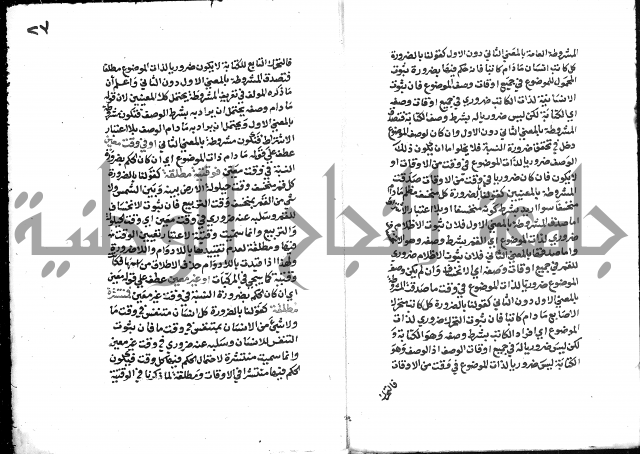 المشروطة العامة بالمعنى الثاني دون الاول كقولنا بالضرورة
كل كاتب انسان مادام كاتبا فان حكم فيها بضرورة ثبوت
المحمول للموضوع في جميع اوقات وصف الموضوع فان ثبوت
الانسانية لذات الكاتب ضروري في جميع اوقات وصفه
اي الكتابة لكن ليس ضروريا له بشرط وصف الكتابة فتصدق
المشروطة بالمعنى الثاني دون الاول وان كان لوصف الموضوع
دخل في تحقق ضرورة النسبة فلا يخلو اما ان يكون ذلك
الوصف ضروريا لذات الموضوع في وقت من الاوقات او
لا يكون فان كان ضروريا في وقت من الاوقات صدقت
المشروطة بالمعنيين كقولنا بالضرورة كل منخسف مظلم مادام
منخسفا سواء اريد بشرط كونه منخسفا او بلا اعتبار الاشتراط
اما صدق المشروطة بالمعنى الاول فلان ثبوت الاظلام
ضروري لذات الموضوع اي القمر بشرط وصفه وهو الانخساف
واما صدقها بالمعنى الثاني فلان ثبوت الاظلام ضروري
للقمر في جميع اوقات وصفه اي الانخساف وان لم يكن وصف
الموضوع ضروريا لذات الموضوع في وقت ما صدقت المشروطة
بالمعنى الاول دون الثاني كقولنا بالضرورة كل كاتب متحرك
الاصابع مادام كاتبا فان ثبوت التحرك ضروري لذات
الموضوع اي افراد الكاتب بشرط وصفه وهو الكتابة
لكن ليس ضروريا له في جميع اوقات الوصف اذ الوصف وهو
الكتابة ليس ضروريا لذات الموضوع في وقت من الاوقات
فالتحرك
٢٧
فالتحرك التابع للكتابة لا يكون ضروريا لذات الموضوع مطلقا
فتصدق المشروطة بالمعنى الاول دون الثاني واعلم ان
ما ذكره المؤلف في تعريف المشروطة يحتمل كلا المعنيين لان قوله
مادام وصفه يحتمل ان يراد به بشرط الوصف فتكون مشروطة
بالمعنى الاول ويحتمل ان يراد به مادام الوصف بلا اعتبار
الاشتراط فتكون مشروطة بالمعنى الثاني او في وقت معين
عطف على قوله مادام ذات الموضوع اي ان كان الحكم بضرورة
النسبة في وقت معين فوقتية مطلقة كقولنا بالضرورة
كل قمر منخسف وقت حيلولة الارض بينه وبين الشمس ولا
شيء من القمر بمنخسف وقت التربيع فان ثبوت الانخساف
للقمر وسلبه عنه ضروري في وقت معين اي وقت الحيلولة
والتربيع وانما سميت وقتية لاعتبار تعيين الوقت
فيها ومطلقة لعدم تقييدها باللادوام واللاضرورة
ولهذا اذا قيدت باللادوام حذف الاطلاق من اسمها فكانت
وقتية كما سيجيء في المركبات او غير معين عطف على قوله معين
اي ان كان الحكم بضرورة النسبة في وقت غير معين فمنتشرة
مطلقة كقولنا بالضرورة كل انسان متنفس في وقت ما
ولا شيء من الانسان بمتنفس في وقت ما فان ثبوت
التنفس للانسان وسلبه عنه ضروري في وقت غير معين
وانما سميت منتشرة لاحتمال الحكم فيها كل وقت فيكون
الحكم فيها منتشرا في الاوقات ومطلقة لما ذكرنا في الوقتية
جامعة النجاح الوطنية